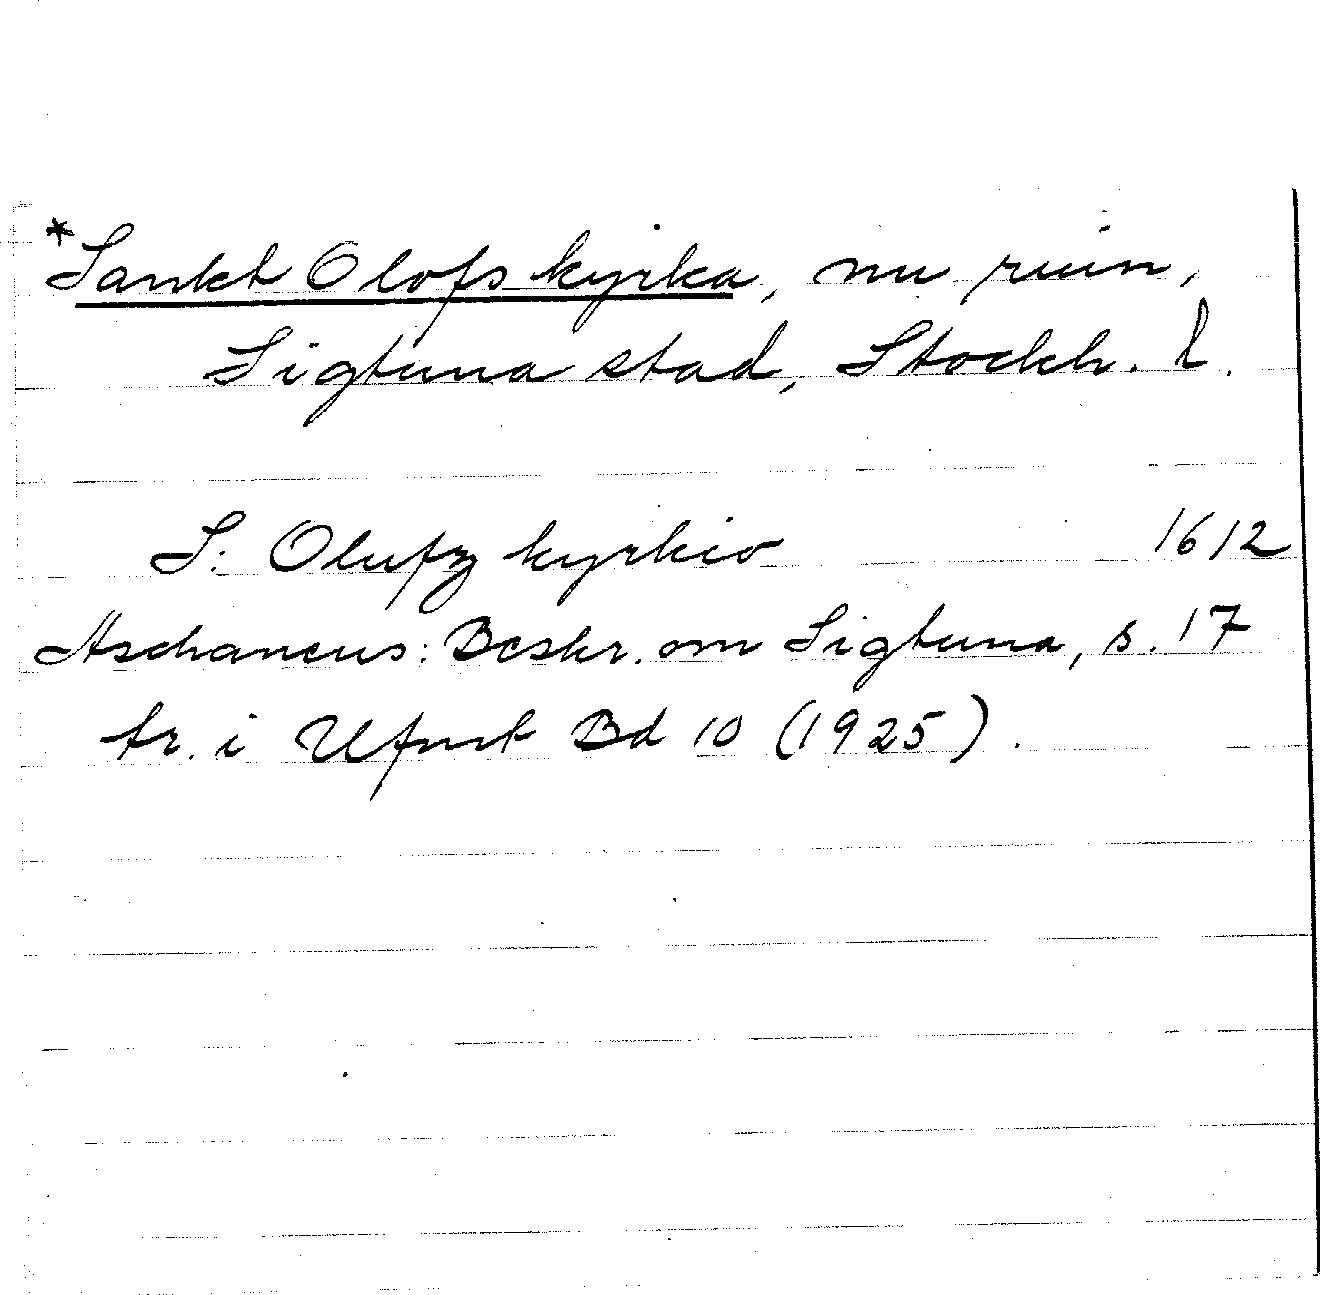 *Sankt Olofs kyrka, nu ruin,
Sigtuna stad, Stockh. l.
S: Olufz kyrkio 1612
Aschaneus: Beskr. om Sigtuna, s. 17
tr. i Ufmt Bd 10 (1925).